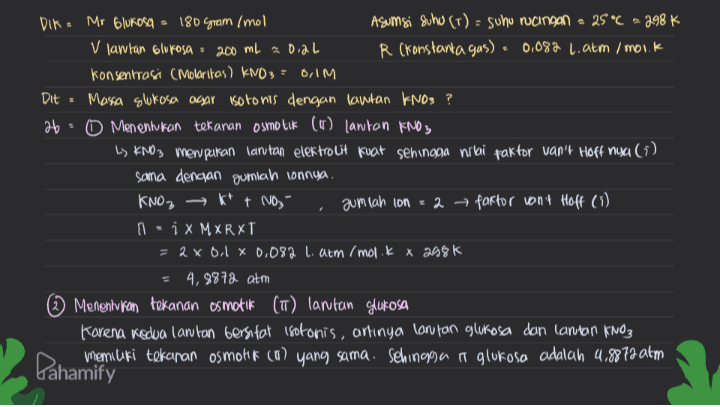 Dik = Mr Glukosa = 180 gram/mol
Asumsi suhu (T) = suhu ruangan = 25°C = 298 K
V larutan Glukosa = 200 mL = 0,2 L
R (konstanta gas) = 0,082 L.atm/mol.K
Konsentrasi (Molaritas) KNO3 = 0,1 M
Dit = Massa glukosa agar isotonis dengan larutan KNO3 ?
Jb = ① Menentukan tekanan osmotik (π) larutan KNO3
↳ KNO3 merupakan larutan elektrolit kuat sehingga nilai faktor van't Hoff nya (i)
sama dengan jumlah ionnya.
KNO3 → K+ + NO3- , jumlah ion = 2 → faktor van't Hoff (i)
π = i x M x R x T
= 2 x 0,1 x 0,082 L.atm/mol.K x 298 K
= 4,8872 atm
② Menentukan tekanan osmotik (π) larutan glukosa
Karena kedua larutan bersifat isotonis, artinya larutan glukosa dan larutan KNO3
memiliki tekanan osmotik (π) yang sama. Sehingga π glukosa adalah 4,8872 atm
Pahamify